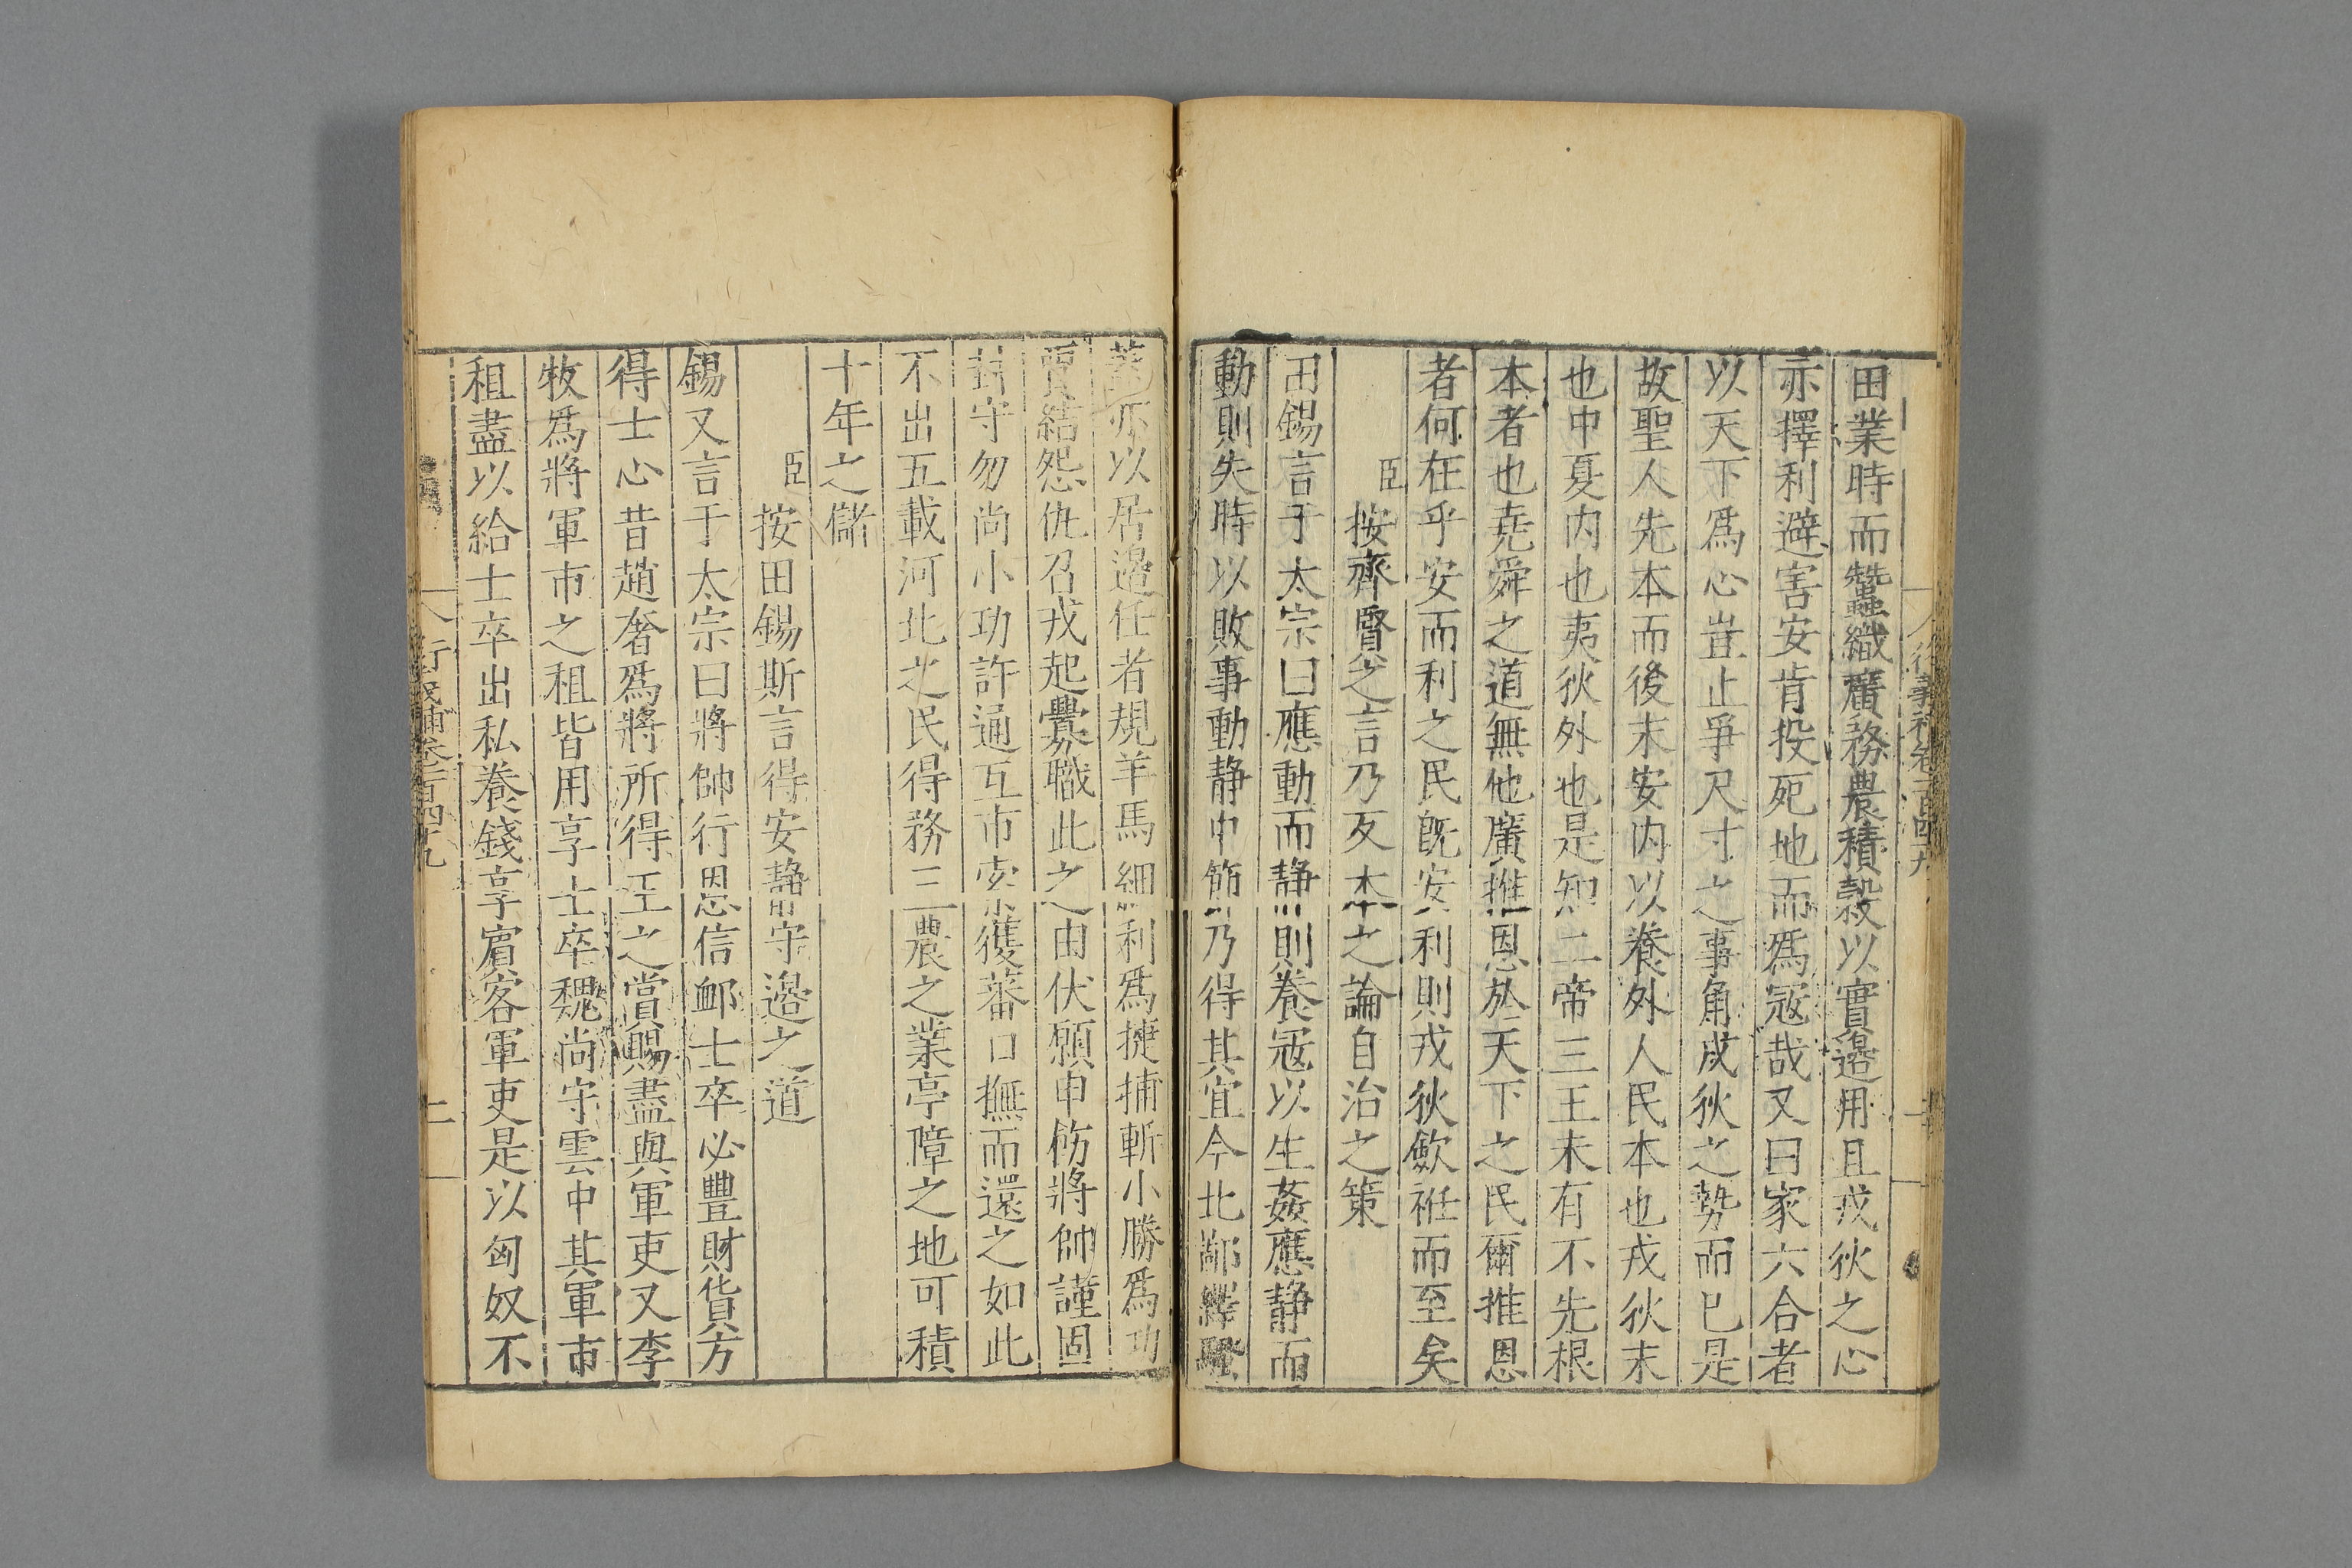 田業時而蠶織廣務農積穀以實邊用且戎狄之心
亦擇利避害安肯投死地而爲冦哉又曰家六合者
以天下爲心豈止爭尺寸之事角戎狄之勢而已是
故聖人先本而後末安内以養外人民本也戎狄末
也中夏内也夷狄外也是知二帝三王未有不先根
本者也堯舜之道無他廣推恩於天下之民爾推恩
者何在乎安而利之民旣安利則戎狄歛衽而至矣
臣按齊賢之言乃反本之論自治之策
田錫言于太宗曰應動而静則養冦以生姦應静而
動則失時以敗事動静中節乃得其宜今北鄙繹騷
蓋亦以居邉任者規羊馬細利爲捷捕斬小勝爲功
賈結怨仇召戎起釁職此之由伏願申飭將帥謹固
封守勿尚小功許通互市索獲蕃口撫而還之如此
不出五載河北之民得務三農之業亭障之地可積
十年之儲
臣按田錫斯言得安静守邉之道
錫又言于太宗曰將帥行恩信䘏士卒必豐財貨方
得士心昔趙奢爲將所得王之賞賜盡與軍吏又李
牧爲將軍市之租皆用享士卒魏尚守雲中其軍市
租盡以給士卒出私養錢享賔客軍吏是以匈奴不